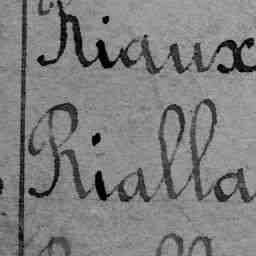 Riaux
Rialla